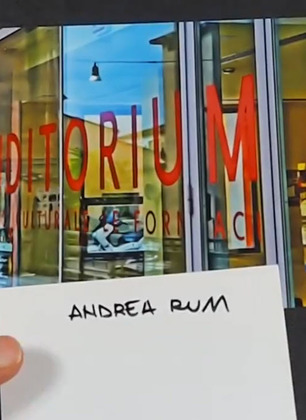 DITORIUM
ULTURAL
FORNACI
ANDREA RUM